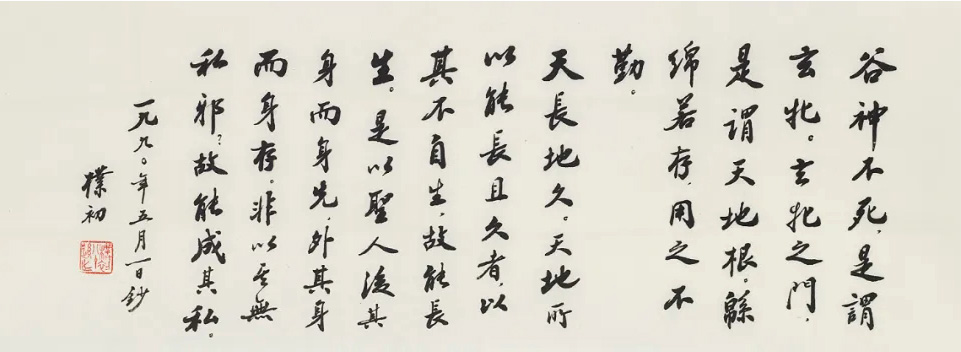 谷神不死,是謂
玄牝。玄牝之門,
是謂天地根。緜
綿若存,用之不
勤。
天長地久。天地所
以能長且久者,以
其不自生,故能長
生。是以聖人後其
身而身先,外其身
而身存。非以其無
私邪?故能成其私。
一九九〇年五月一日鈔
樸初